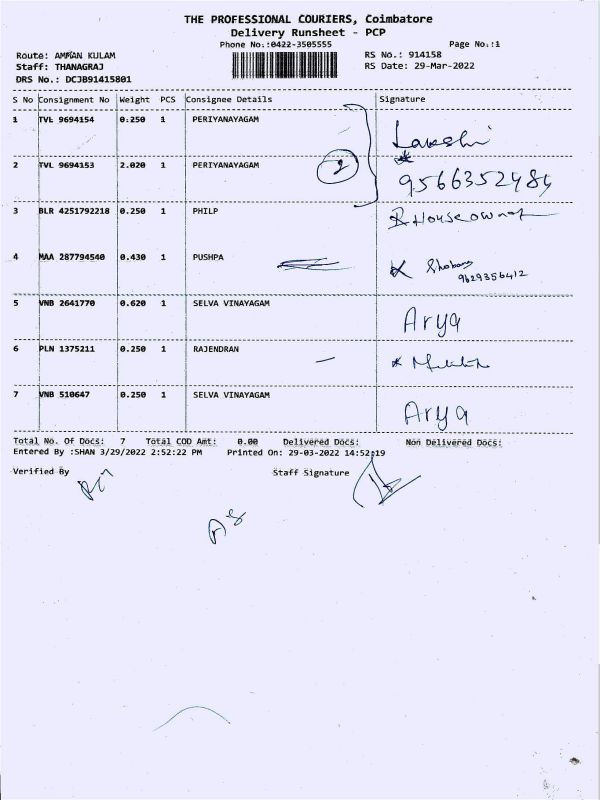 THE PROFESSIONAL COURIERS, Coimbatore
Delivery Runsheet - PCP
Phone No.:0422-3505555
Page No.:1
Route: AMMAN KULAM
RS No.: 914158
Staff: THANAGRAJ
RS Date: 29-Mar-2022
DRS No.: DCJB91415801
S No Consignment No Weight PCS Consignee Details Signature
1 TVL 9694154 0.250 1 PERIYANAYAGAM Lakshi
2 TVL 9694153 2.020 1 PERIYANAYAGAM 2 9566352484
3 BLR 4251792218 0.250 1 PHILP House owner
4 MAA 287794540 0.430 1 PUSHPA Shobana
9629356412
5 VNB 2641770 0.620 1 SELVA VINAYAGAM Arya
6 PLN 1375211 0.250 1 RAJENDRAN
7 VNB 510647 0.250 1 SELVA VINAYAGAM Arya
Total No. Of Docs: 7 Total COD Amt: 0.00 Delivered Docs: Non Delivered Docs:
Entered By :SHAN 3/29/2022 2:52:22 PM Printed On: 29-03-2022 14:52:19
Verified By Staff Signature